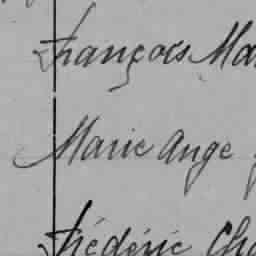 François Ma
Marie Ange
Frédéric Cha